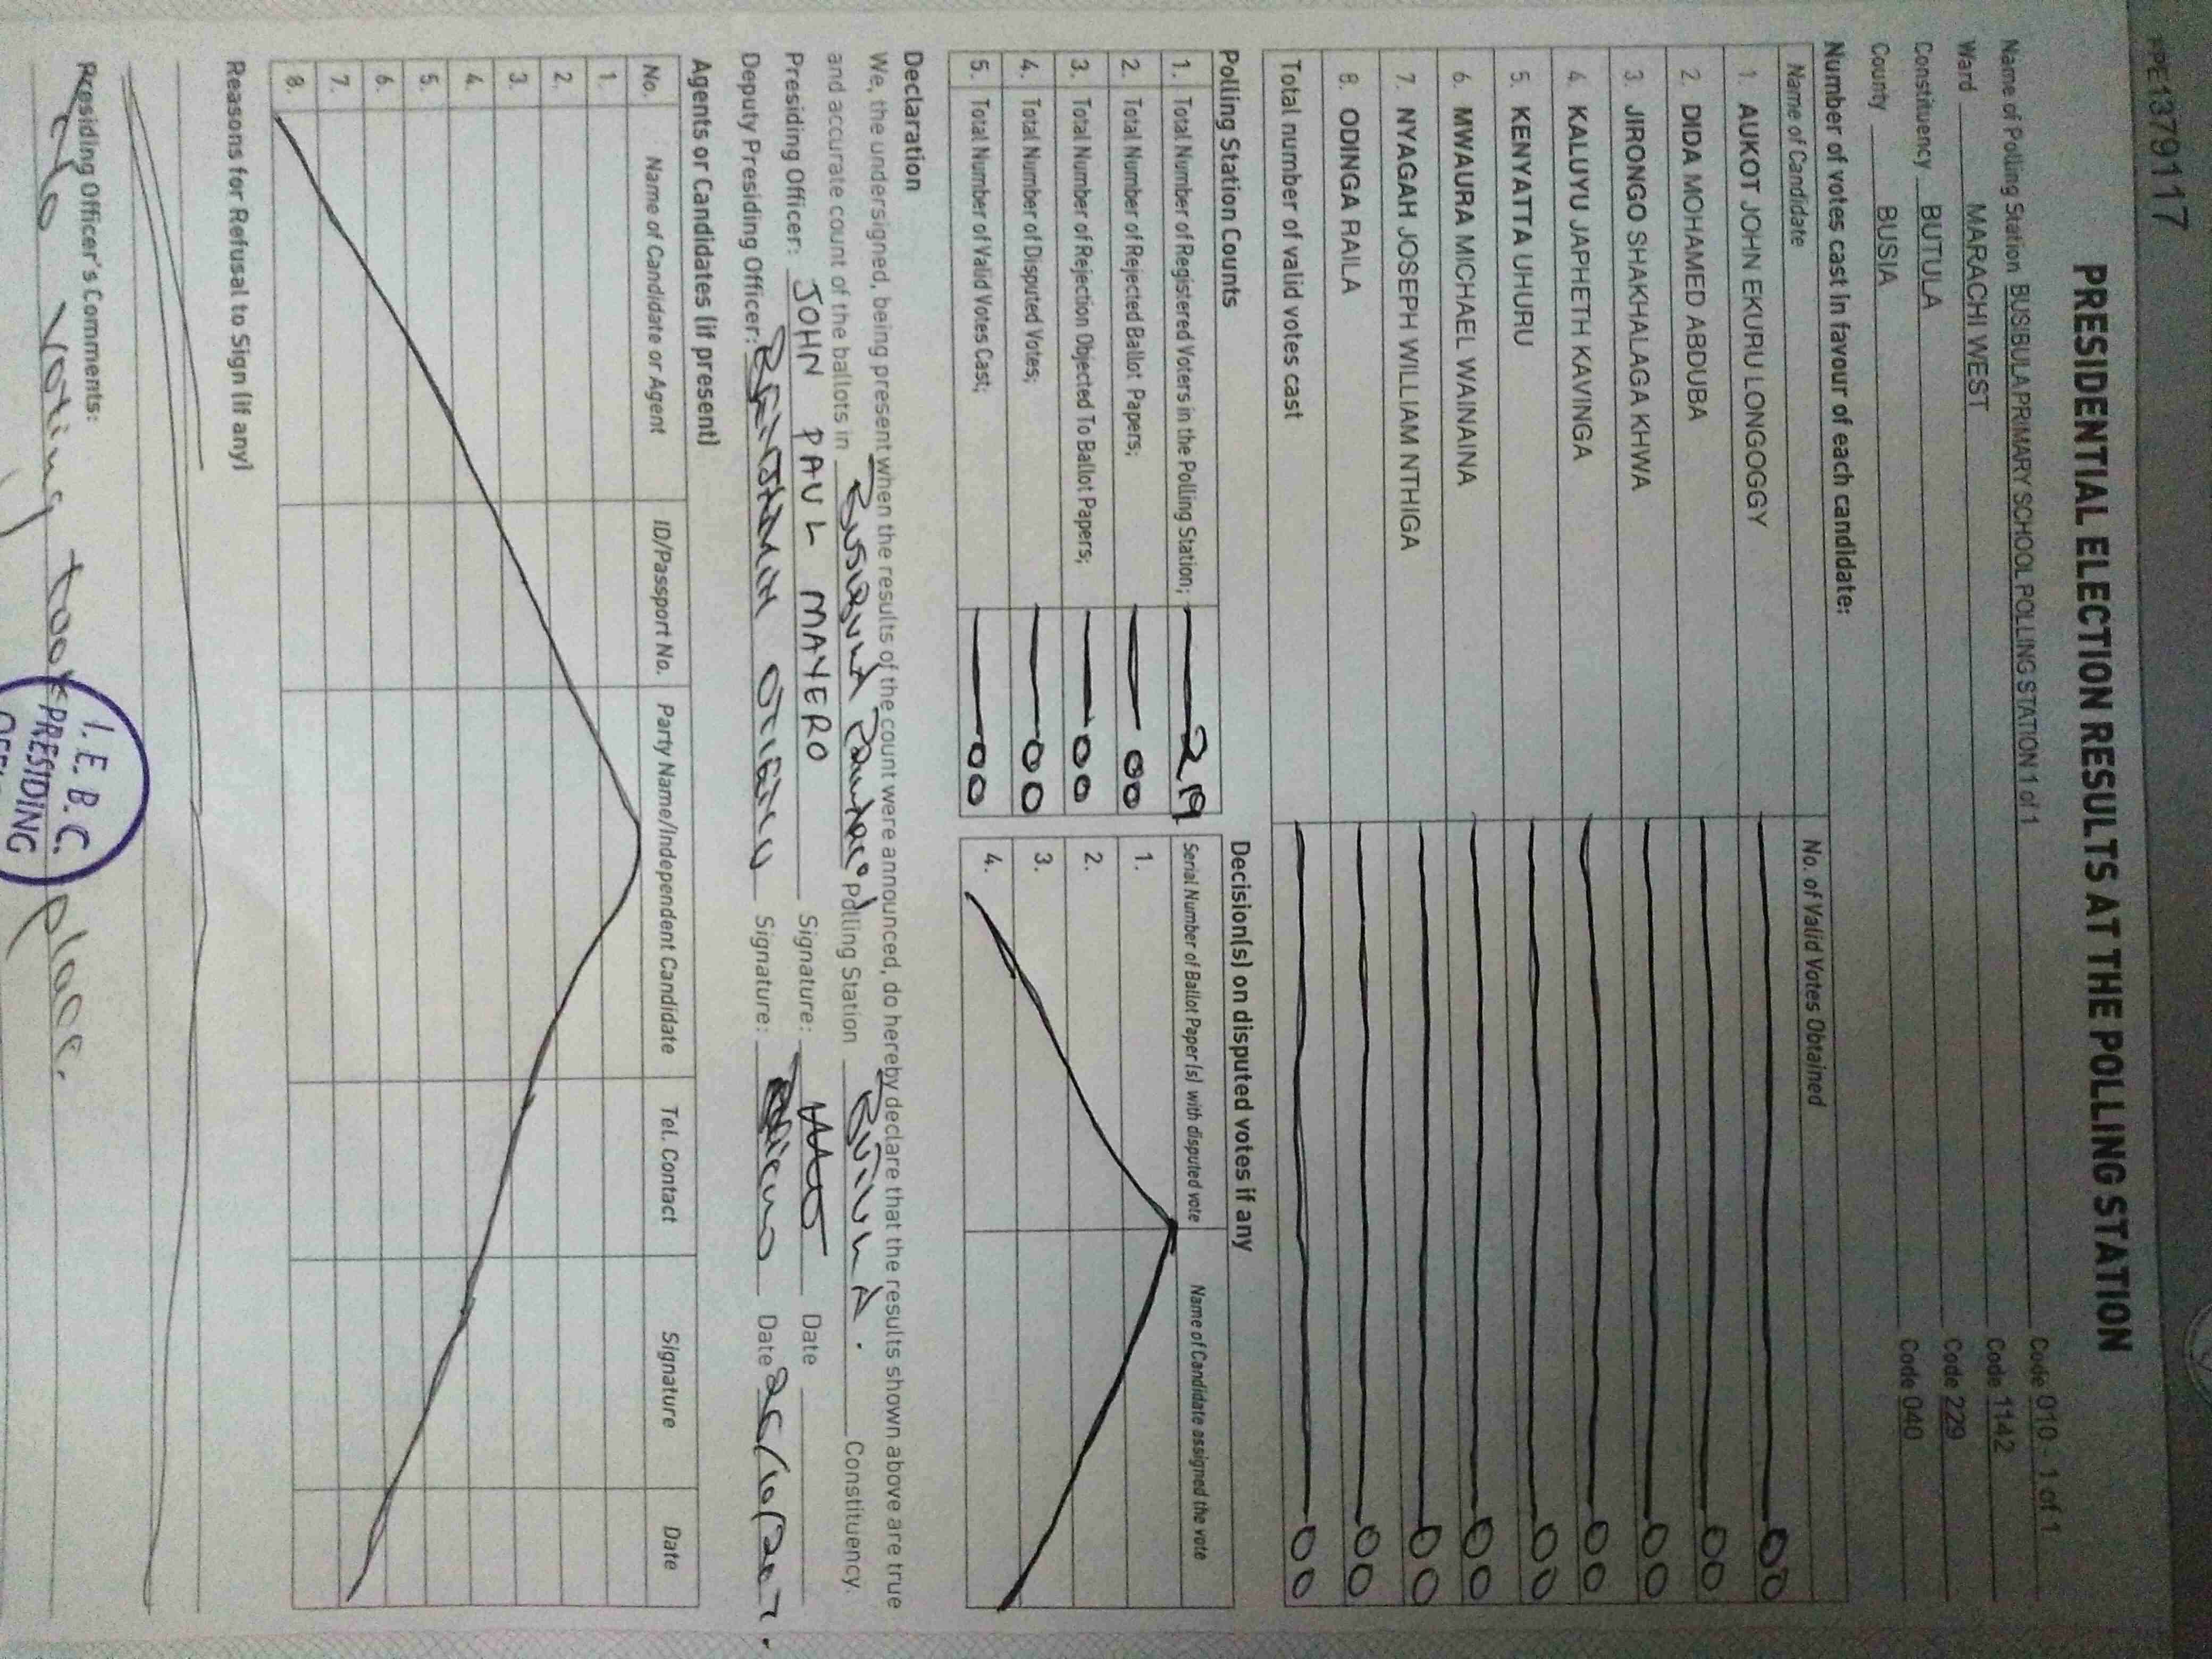 PPE1379117
PRESIDENTIAL ELECTION RESULTS AT THE POLLING STATION
Name of Polling Station BUSIBULA PRIMARY SCHOOL POLLING STATION 1 of 1 Code 010 - 1 of 1
Ward MARACHI WEST Code 1142
Constituency BUTULA Code 229
County BUSIA Code 040
Number of votes cast in favour of each candidate:
Name of Candidate No. of Valid Votes Obtained
1. AUKOT JOHN EKURU LONGOGGY 00
2. DIDA MOHAMED ABDUBA 00
3. JIRONGO SHAKHALAGA KHWA 00
4. KALUYU JAPHETH KAVINGA 00
5. KENYATTA UHURU 00
6. MWAURA MICHAEL WAINAINA 00
7. NYAGAH JOSEPH WILLIAM NTHIGA 00
8. ODINGA RAILA 00
Total number of valid votes cast 00
Polling Station Counts
1. Total Number of Registered Voters in the Polling Station; 219
2. Total Number of Rejected Ballot Papers; 00
3. Total Number of Rejection Objected To Ballot Papers; 00
4. Total Number of Disputed Votes; 00
5. Total Number of Valid Votes Cast; 00
Decision(s) on disputed votes if any
Serial Number of Ballot Paper (s) with disputed vote Name of Candidate assigned the vote
1.
2.
3.
4.
Declaration
We, the undersigned, being present when the results of the count were announced, do hereby declare that the results shown above are true
and accurate count of the ballots in BUSIBULA Primary Polling Station BUTULA. Constituency.
Presiding Officer: JOHN PAUL MAYERO Signature: Date
Deputy Presiding Officer: OTIENO Signature: Date 26/10/2017.
Agents or Candidates (if present)
No. Name of Candidate or Agent ID/Passport No. Party Name/Independent Candidate Tel. Contact Signature Date
1.
2.
3.
4.
5.
6.
7.
8.
Reasons for Refusal to Sign (if any)
Presiding Officer's Comments:
No voting took place.
I.E.B.C.
PRESIDING